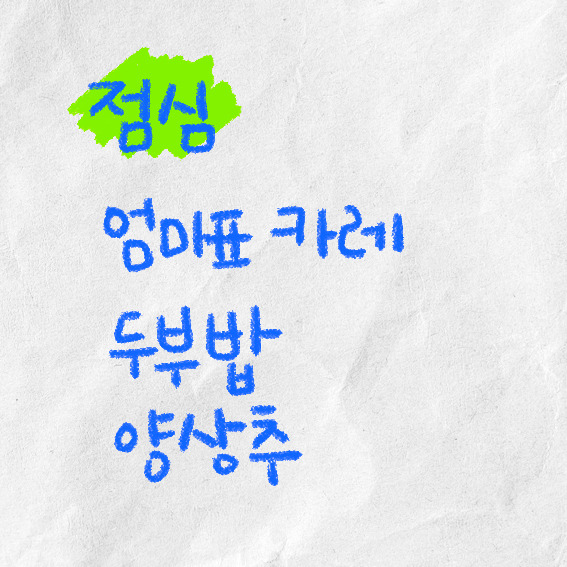 점심
엄마표 카레
두부밥
양상추